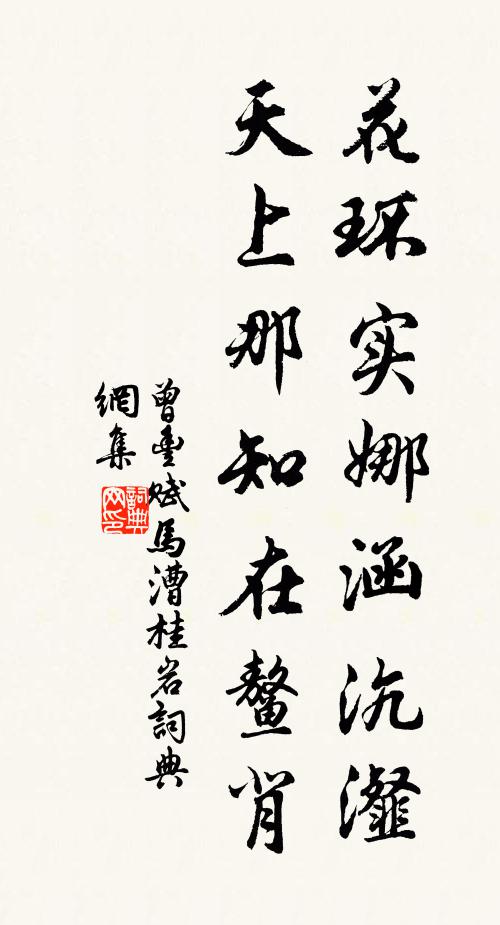 花环实娜涵沆瀣
天上那知在鳌背
曾豐賦馬漕桂岩詞典
網集
詞典
网印